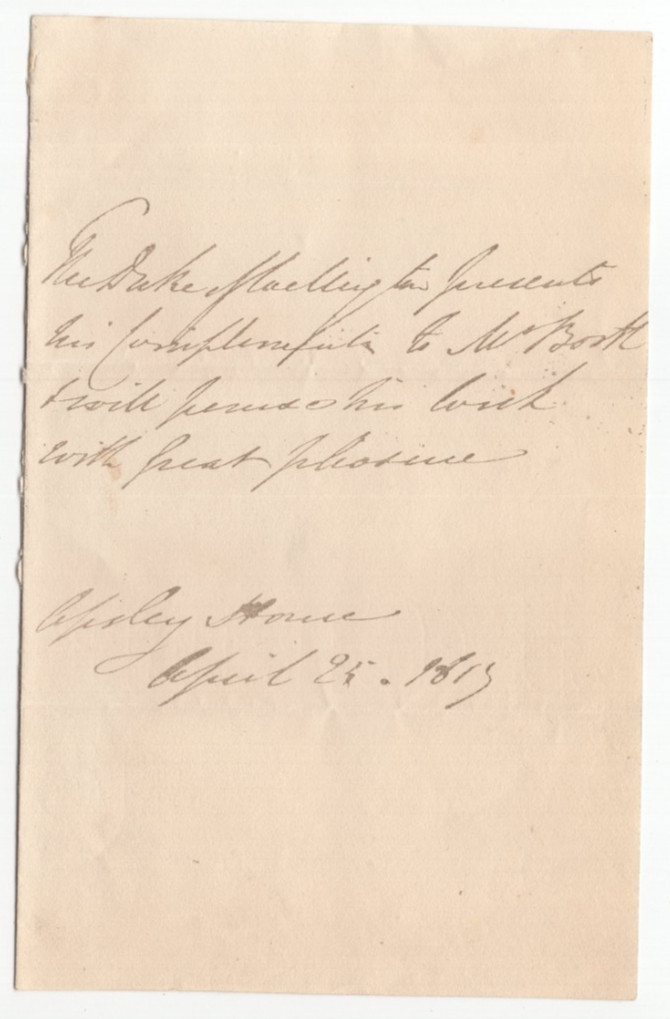 The Duke of Wellington presents
his Compliments to Mr Booth
& will peruse his work
with great pleasure
Apsley House
April 25. 1819